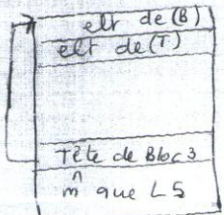 elt de (B)
elt de (T)
Tête de Bloc 3
m̂ que L5